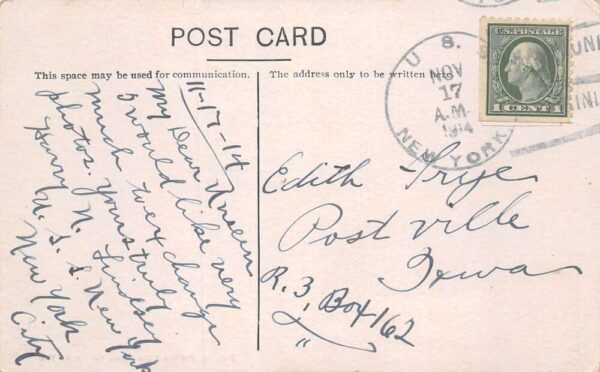 POST CARD
This space may be used for communication.
The address only to be written here.
U. S. POSTAGE
1 CENT 1
U. S. S.
NOV
17
A.M.
1914
NEW YORK
11-17-14
My Dear Unseen
I would like very
much to exchange
photos. Yours truly
Harry N. Lindsey
U. S. S. New York
New York
City
Edith Frye
Postville
Iowa
R. 3, Box 162